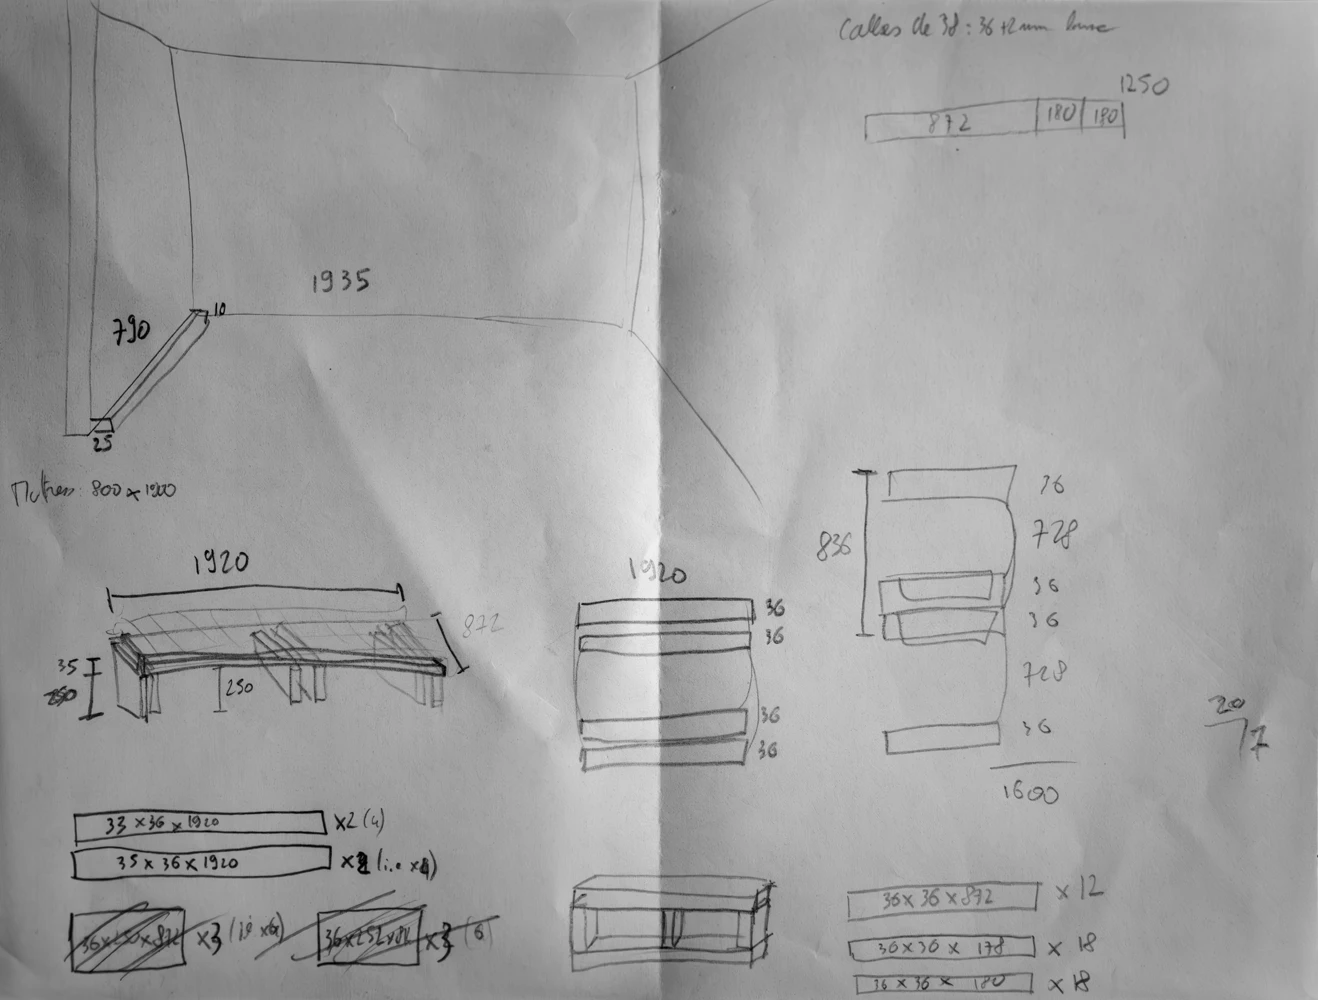 Calles de 38: 36+2mm
1250
872 180 180
1935
10
790
25
Matress: 800 x 1900
1920
872
35
250
250
1920
36
36
36
36
836
36
728
36
36
728
36
1600
20
7
33 x 36 x 1920 x2 (4)
35 x 36 x 1920 (i.e x4)
36 x 36 x 872 x 12
36 x 36 x 178 x 18
36 x 36 x 180 x 18